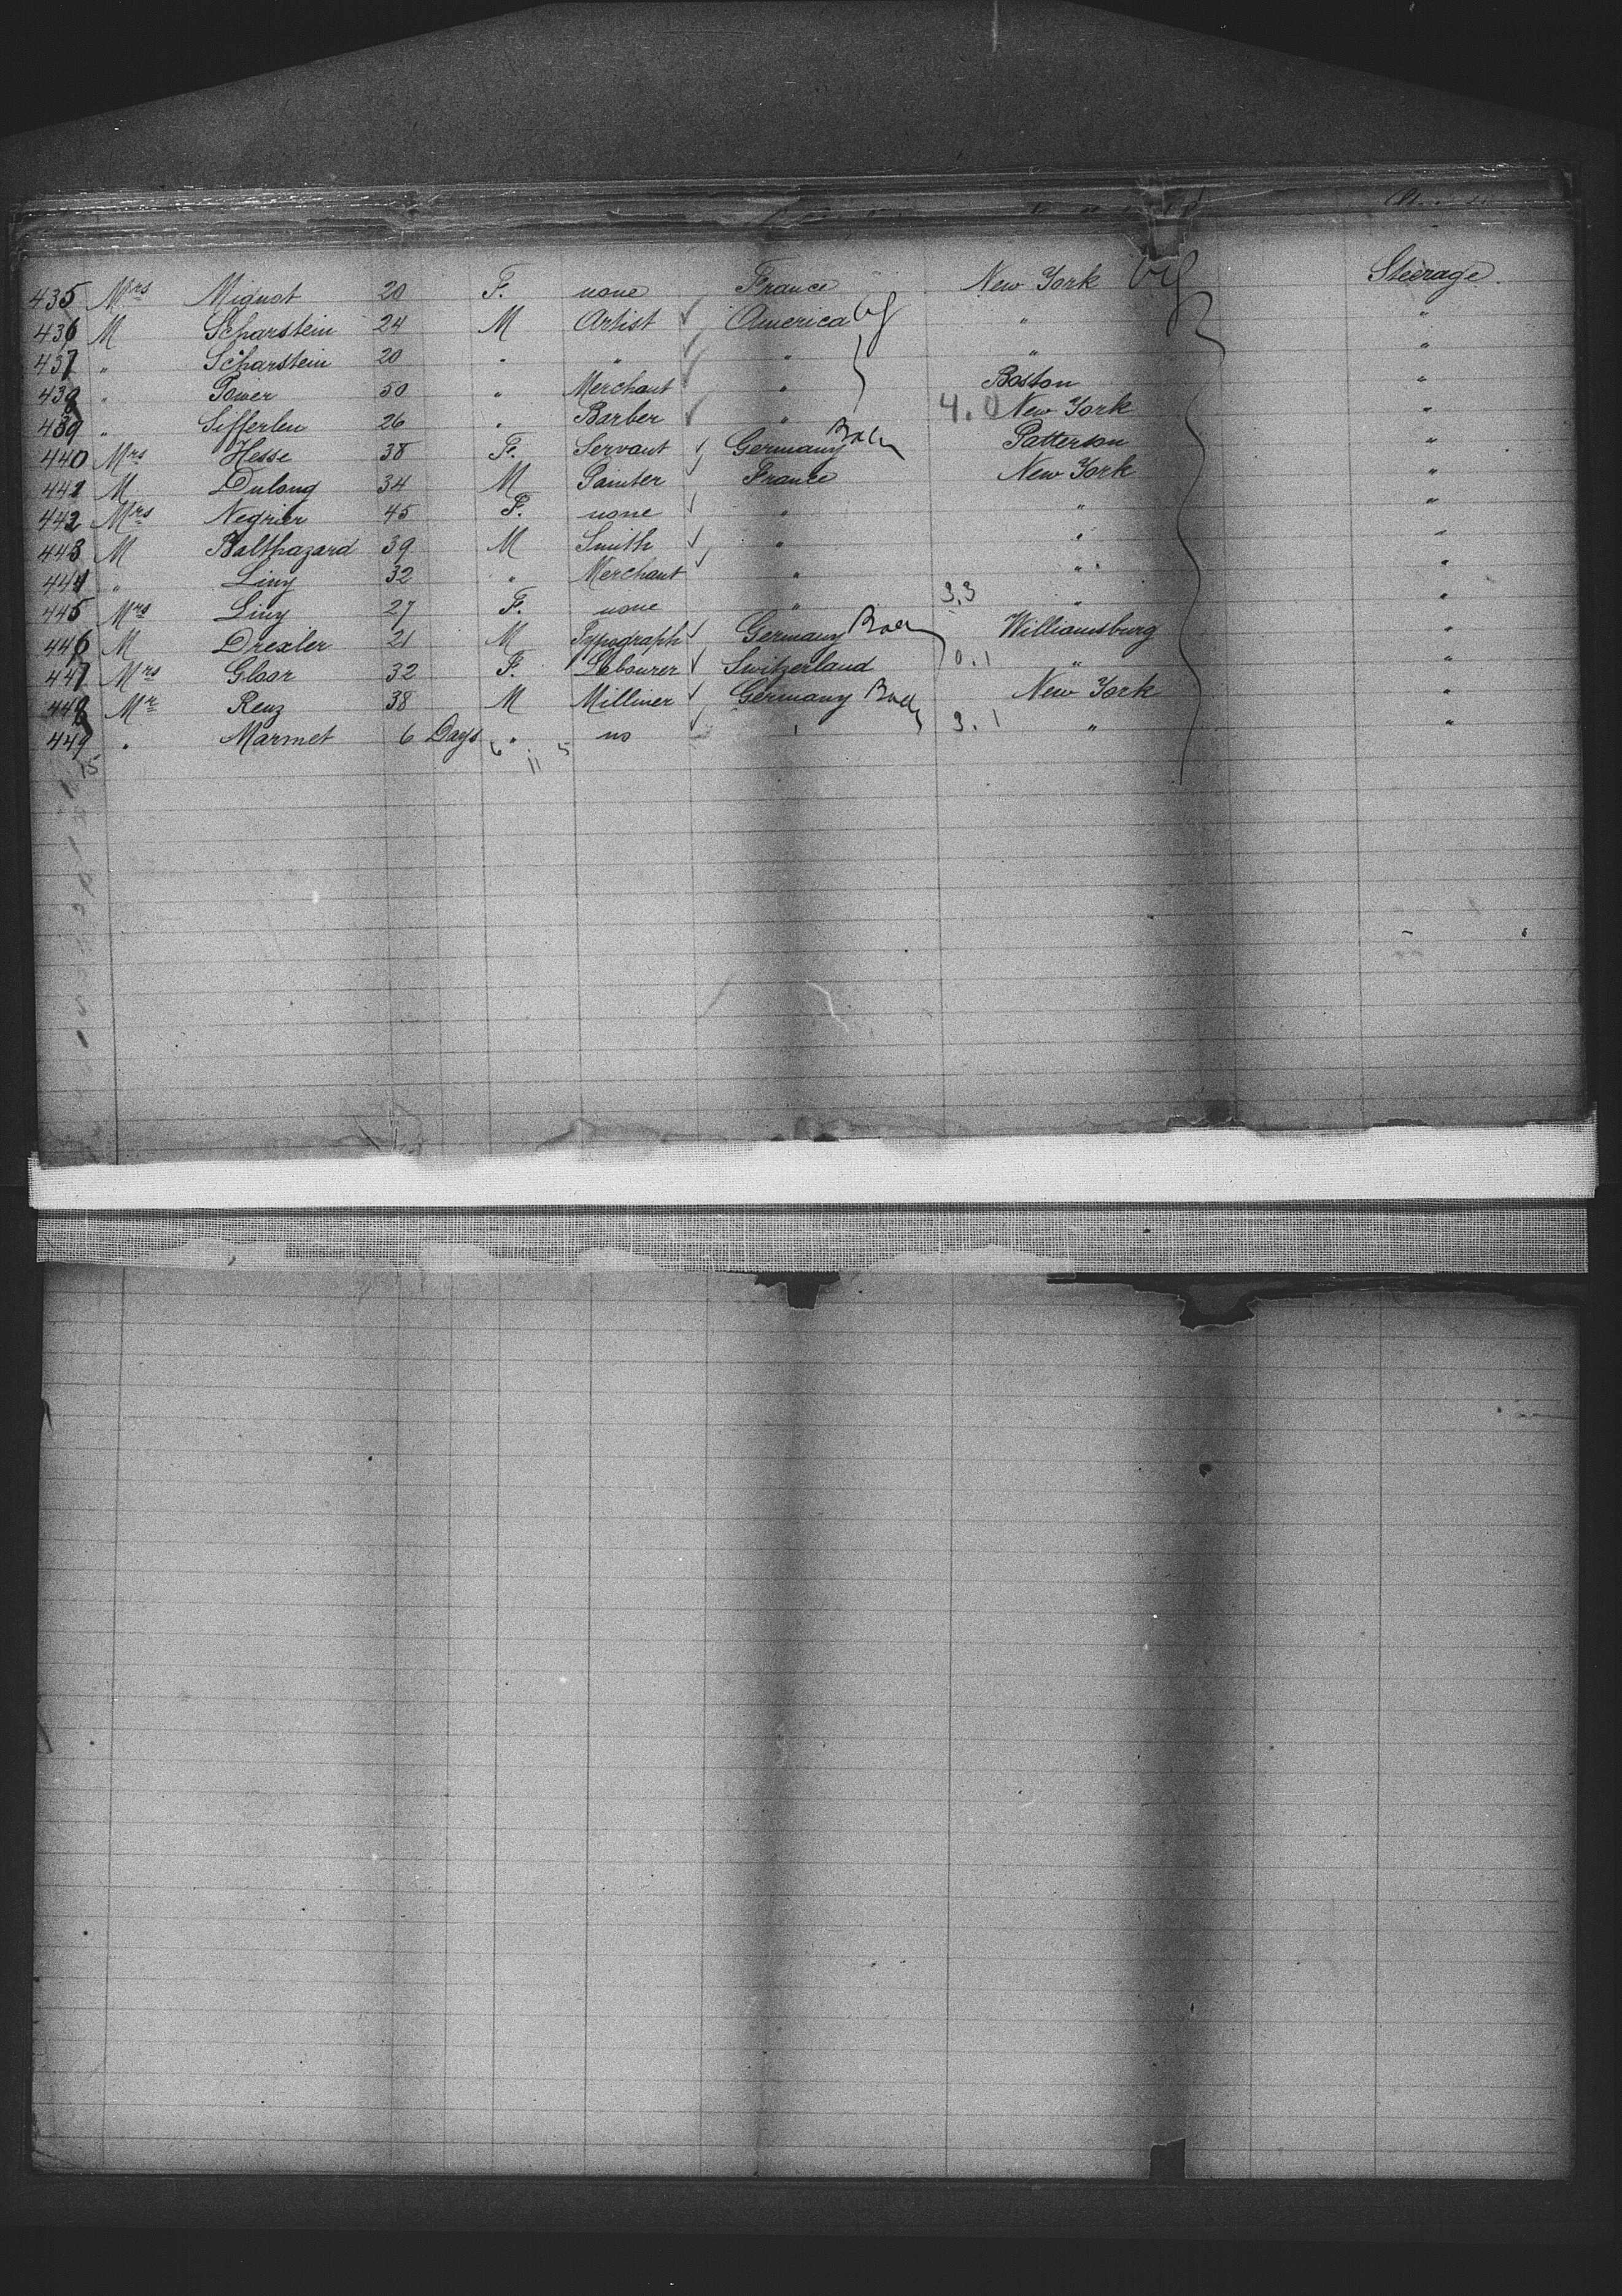 435 Mrs Mignot 20 F. none France New York Steerage
436 M Scharstein 24 M Artist America " "
437 " Scharstein 20 " " " " "
438 " Power 50 " Merchant " Boston "
439 " Sifferlen 26 " Barber " 4.0 New York "
440 Mrs Hesse 38 F. Servant Germany Patterson "
441 M Dulong 34 M Painter France New York "
442 Mrs Negrier 45 F. none " " "
443 M Balthazard 39 M Smith " " "
444 " Liny 32 " Merchant " " "
445 Mrs Liny 27 F. none " 3.3 " "
446 M Drexler 21 M Typograph Germany Williamsburg "
447 Mrs Gloor 32 F. Labourer Switzerland 0.1 " "
448 Mr Renz 38 M Milliner Germany New York "
449 " Marmet 6 Days " no " 3.1 " "
15 6 11 5